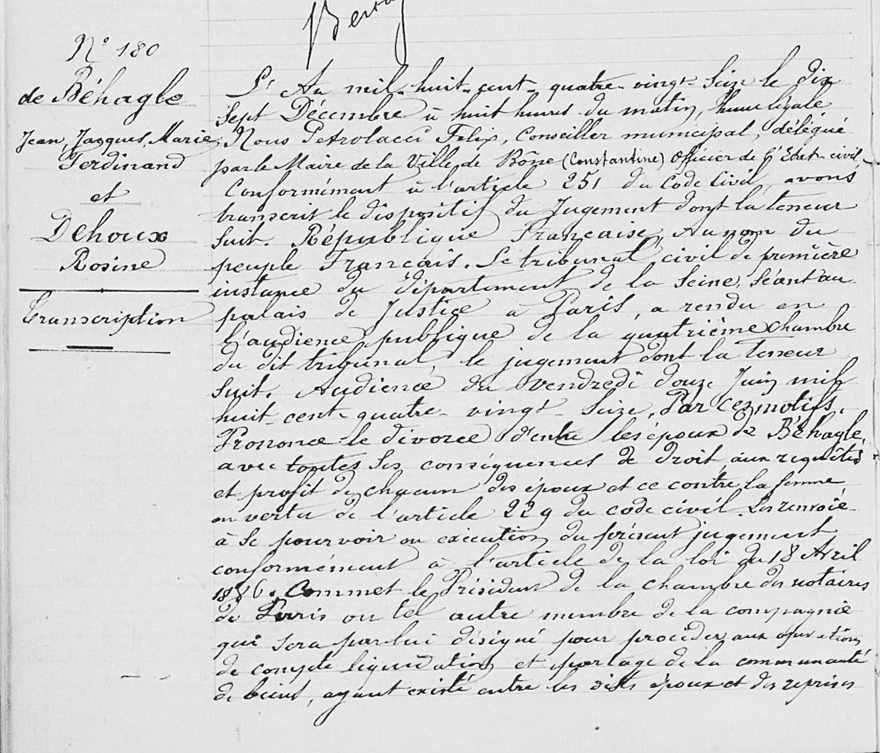 N° 180
de Béhagle
Jean, Jacques, Marie,
Ferdinand
et
Dehoux
Rosine
Transcription
L'An mil-huit-cent-quatre-vingt-seize le dix
sept Décembre à huit heures du matin, heure légale
Nous Petrolacci Felix, Conseiller municipal, délégué
par le Maire de la Ville de Bône (Constantine) Officier de l'Etat-civil
Conformément à l'article 251 du Code Civil, avons
transcrit le dispositif du Jugement dont la teneur
suit. République Française, Au nom du
peuple Français. Le tribunal civil de première
instance du département de la Seine, séant au
palais de Justice à Paris, a rendu en
l'audience publique de la quatrième chambre
du dit tribunal, le jugement dont la teneur
suit. Audience du vendredi douze Juin mil
huit-cent-quatre-vingt-seize. Par ces motifs.
Prononce le divorce d'entre les époux de Béhagle,
avec toutes ses conséquences de droit aux requêtes
et profit de chacun des époux et ce contre la femme
en vertu de l'article 229 du code civil. Les renvoie
à se pourvoir en exécution du présent jugement
conformément à l'article de la loi du 18 Avril
1886. Commet le Président de la chambre des notaires
de Paris ou tel autre membre de la compagnie
qui sera par lui désigné pour procéder aux opérations
de compte liquidation et partage de la communauté
de biens, ayant existé entre les dits époux et des reprises